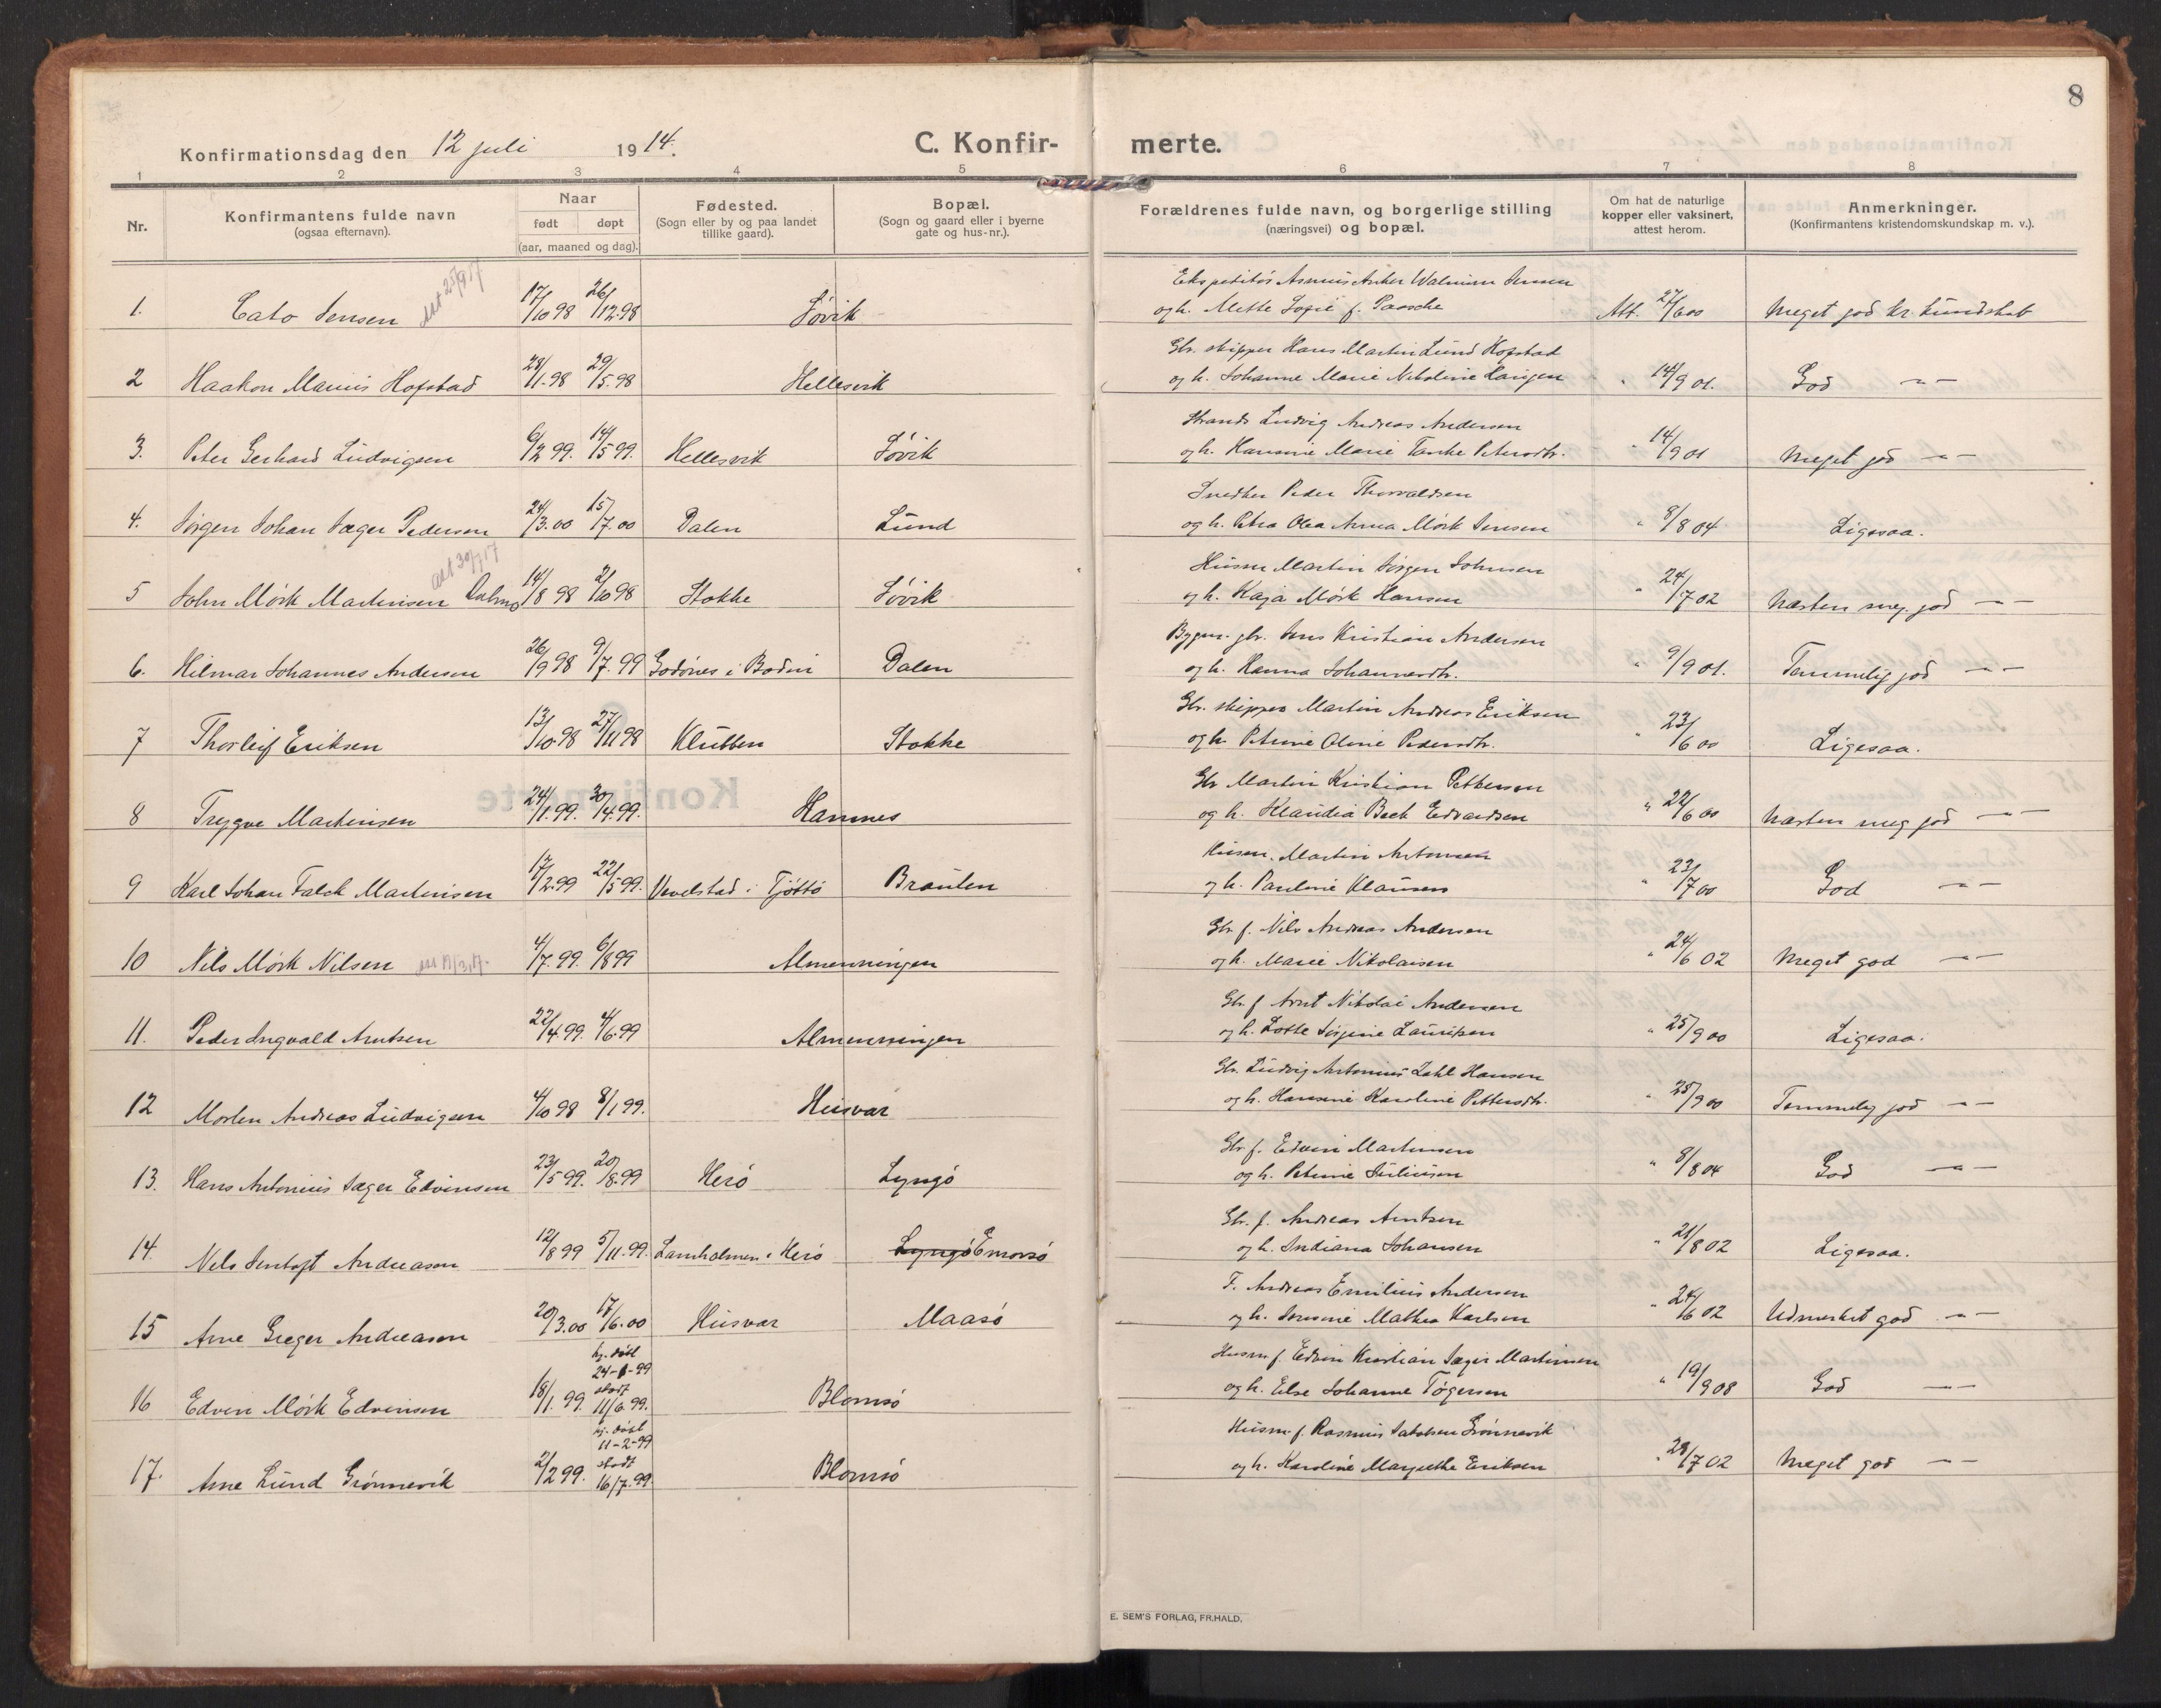 8
Konfirmationsdag den 12 juli 1914.
C. Konfir-
merte.
1 2 3 4 5 6 7 8
Nr.
Konfirmantens fulde navn
(ogsaa efternavn).
Naar
født døpt
(aar, maaned og dag).
Fødested.
(Sogn eller by og paa landet
tillike gaard).
Bopæl.
(Sogn og gaard eller i byerne
gate og hus-nr.).
Forældrenes fulde navn, og borgerlige stilling
(næringsvei) og bopæl.
Om hat de naturlige
kopper eller vaksinert,
attest herom.
Anmerkninger.
(Konfirmantens kristendomskundskap m. v.).
Att 25/9 17
Ekspeditør Asmus Anker Jensen
1. Cato Jensen 17/10 98 26/12 98 Søvik og h. Mette Sofie f. Paasche Att. 27/6 00 Meget god kr. kundskab
Gbr. skipper Hans Martin Lund Hofstad
2 Haakon Marius Hofstad 29/5 98 Hellesvik og h. Johanne Marie Nikoline " 14/9 01. God — " —
Strands. Ludvig Andreas Andersen
3. Peter Gerhard Ludvigsen 6/2 99. 14/5 99. Hellesvik Søvik og h. Hansine Marie Tanke Petersdtr. " 14/9 01 Meget god — " —
Snedker Peder Thorvaldsen
4. Jørgen Johan Jæger Pedersen 24/3.00 15/7.00 Dalen Lund og h. Petra Olea Anna Mørk Jensen " 8/8 04 Ligesaa.
att 30/7 17
Husm Martin Jørgen Johnsen
5 John Mørk Martinsen 14/8 98 2/10 98 Stokke Søvik og h. Kaja Mørk Hansen " 24/7 02 Næsten meg. god — " —
Bygm. gbr. Jens Kristian Andersen
6. Hilmar Johannes Andersen 26/9 98 9/7. 99 Godønes i Bodin Dalen og h. Hanna Johannesdtr. " 9/9 01. Temmelig god — " —
Gbr. skipper Martin Andreas Eriksen
7 Thorleif Eriksen 13/10 98 27/11 98 Klubben Stokke og h. Petrine Oline Pedersdtr. " 23/6 00 Ligesaa.
Gbr Martin Kristian Pettersen
8 Trygve Martinsen 24/1.99. 30/4.99. Hamnes og h. Klaudia Bech Edvardsen " 22/6 00 Næsten meg god — " —
Husm. Martin Antonsen
9 Karl Johan Falck Martinsen 17/2.99 22/5 99. Vevelstad i Tjøttø Brauten og h. Pauline Klausen " 23/7 00 God — " —
Gbr f. Nils Andreas Andersen
10 Nils Mørk Nilsen 4/7. 99. 6/8 99 Almenningen og h. Marie Nikolaisen " 24/6 02 Meget god — " —
Gbr f Arnt Nikolai Andersen
11. Peder Ingvald Arntsen 22/4.99. 4/6.99 Almenningen og h. Lotte Jørgine Lauritsen " 25/9 00 Ligesaa.
Gbr. Ludvig Antonius Zahl Hansen
12 Morten Andreas Ludvigsen 4/10 98 8/1 99. Husvær og h. Hansine Karoline Pettersdtr. " 25/9 00 Temmelig god — " —
Gbr f. Edvin Martinsen
13. Hans Antonius Jæger Edvinsen 23/5 99. 20/8.99 Herø Lyngø og h. Petrine Juliusen " 8/8 04 God — " —
Gbr. f. Andreas Arntsen
14. Nils Jentoft Andreasen 12/8 99 5/11.99. i Herø Lyngø Emorsø og h. Indiana Johansen " 21/8 02 Ligesaa.
F. Andreas Emilius Andersen
15 Arne Greger Andreasen 20/3.00 17/6.00 Husvær Maasø og h. Jensine Mathea Karlsen " 24/6 02 Udmerket god — " —
hj. døbt
24-1-99
stadf
Husm f. Edvin Kristian Jæger Martinsen
16 Edvin Mørk Edvinsen 18/1. 99. 11/6.99. Blomsø og h. Else Johanne Tøgersen " 19/9 08 God — " —
hj. døbt
11-2-99
stadf
Husm f. Rasmus Jakobsen Grønnevik
17. Arne Lund Grønnevik 2/2 99. 16/7.99 Blomsø og h. Karoline Margrethe Eriksen " 28/7 02 Meget god — " —
E. SEM'S FORLAG, FR.HALD.